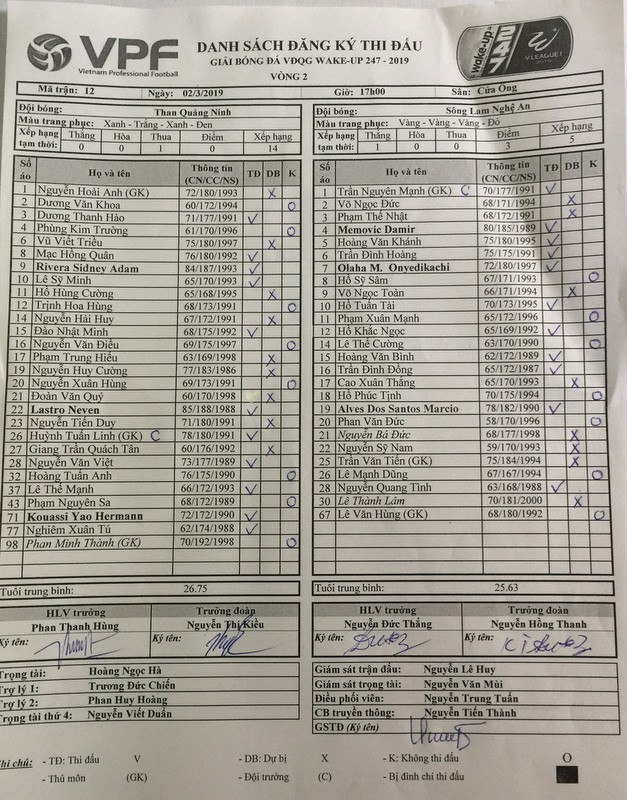 VPF
Vietnam Professional Football
DANH SÁCH ĐĂNG KÝ THI ĐẤU
GIẢI BÓNG ĐÁ VĐQG WAKE-UP 247 - 2019
VÒNG 2
wake-up 247
V.LEAGUE 1
Mã trận: 12 Ngày: 02/3/2019 Giờ: 17h00 Sân: Cửa Ông
Đội bóng: Than Quảng Ninh
Màu trang phục: Xanh - Trắng - Xanh - Đen
Xếp hạng tạm thời: Thắng Hòa Thua Điểm Xếp hạng
0 0 1 0 14
Số áo Họ và tên Thông tin (CN/CC/NS) TĐ DB K
1 Nguyễn Hoài Anh (GK) 72/180/1993 X
2 Dương Văn Khoa 60/172/1994 O
3 Dương Thanh Hào 71/177/1991 V
4 Phùng Kim Trường 61/170/1996 O
6 Vũ Viết Triều 75/180/1997 X
8 Mạc Hồng Quân 76/180/1992 V
9 Rivera Sidney Adam 84/187/1993 V
10 Lê Sỹ Minh 65/170/1993 V
11 Hồ Hùng Cường 65/168/1995 X
12 Trịnh Hoa Hùng 68/173/1991 O
14 Nguyễn Hải Huy 67/172/1991 X
15 Đào Nhật Minh 68/175/1992 V
16 Nguyễn Văn Điều 69/175/1997 O
17 Phạm Trung Hiếu 63/169/1998 X
19 Nguyễn Huy Cường 77/183/1986 X
20 Nguyễn Xuân Hùng 69/173/1991 O
21 Đoàn Văn Quý 60/170/1998 X
22 Lastro Neven 85/188/1988 V
23 Nguyễn Tiến Duy 71/180/1991 X
26 Huỳnh Tuấn Linh (GK) C 78/180/1991 V
27 Giang Trần Quách Tân 60/176/1992 X
28 Nguyễn Văn Việt 73/177/1989 V
32 Hoàng Tuấn Anh 76/175/1990 O
37 Lê Thế Mạnh 66/172/1993 V
43 Phạm Nguyên Sa 68/172/1989 O
71 Kouassi Yao Hermann 72/172/1990 V
77 Nghiêm Xuân Tú 62/174/1988 V
98 Phan Minh Thành (GK) 70/192/1998 O
Tuổi trung bình: 26.75
HLV trưởng Trưởng đoàn
Phan Thanh Hùng Nguyễn Thị Kiều
Ký tên: Ký tên:
Trọng tài: Hoàng Ngọc Hà
Trợ lý 1: Trương Đức Chiến
Trợ lý 2: Phan Huy Hoàng
Trọng tài thứ 4: Nguyễn Viết Duẩn
Đội bóng: Sông Lam Nghệ An
Màu trang phục: Vàng - Vàng - Vàng - Đỏ
Xếp hạng tạm thời: Thắng Hòa Thua Điểm Xếp hạng
1 0 0 3 5
Số áo Họ và tên Thông tin (CN/CC/NS) TĐ DB K
1 Trần Nguyên Mạnh (GK) C 70/177/1991 V
2 Võ Ngọc Đức 68/171/1994 X
3 Phạm Thế Nhật 68/172/1991 X
4 Memovic Damir 80/185/1989 V
5 Hoàng Văn Khánh 75/180/1995 V
6 Trần Đình Hoàng 75/175/1991 V
7 Olaha M. Onyedikachi 72/180/1997 V
8 Hồ Sỹ Sâm 67/171/1993 O
9 Võ Ngọc Toàn 66/171/1994 X
10 Hồ Tuấn Tài 70/173/1995 V
11 Phạm Xuân Mạnh 65/172/1996 O
12 Hồ Khắc Ngọc 65/169/1992 V
14 Lê Thế Cường 63/170/1990 O
15 Hoàng Văn Bình 62/172/1989 V
16 Trần Đình Đồng 65/172/1987 V
17 Cao Xuân Thắng 65/170/1993 X
18 Hồ Phúc Tịnh 70/175/1994 O
19 Alves Dos Santos Marcio 78/182/1990 V
20 Phan Văn Đức 58/170/1996 O
21 Nguyễn Bá Đức 68/177/1998 X
22 Nguyễn Sỹ Nam 59/170/1993 X
25 Trần Văn Tiến (GK) 75/184/1994 X
26 Lê Mạnh Dũng 67/167/1994 O
28 Nguyễn Quang Tình 63/168/1988 V
30 Lê Thành Lâm 70/181/2000 X
67 Lê Văn Hùng (GK) 68/180/1992 O
Tuổi trung bình: 25.63
HLV trưởng Trưởng đoàn
Nguyễn Đức Thắng Nguyễn Hồng Thanh
Ký tên: Ký tên:
Giám sát trận đấu: Nguyễn Lê Huy
Giám sát trọng tài: Nguyễn Văn Mùi
Điều phối viên: Nguyễn Trung Tuấn
CB truyền thông: Nguyễn Tiến Thành
GSTĐ (Ký tên)
Ghi chú: - TĐ: Thi đấu V - DB: Dự bị X - K: Không thi đấu O
- Thủ môn (GK) - Đội trưởng (C) - Bị đình chỉ thi đấu